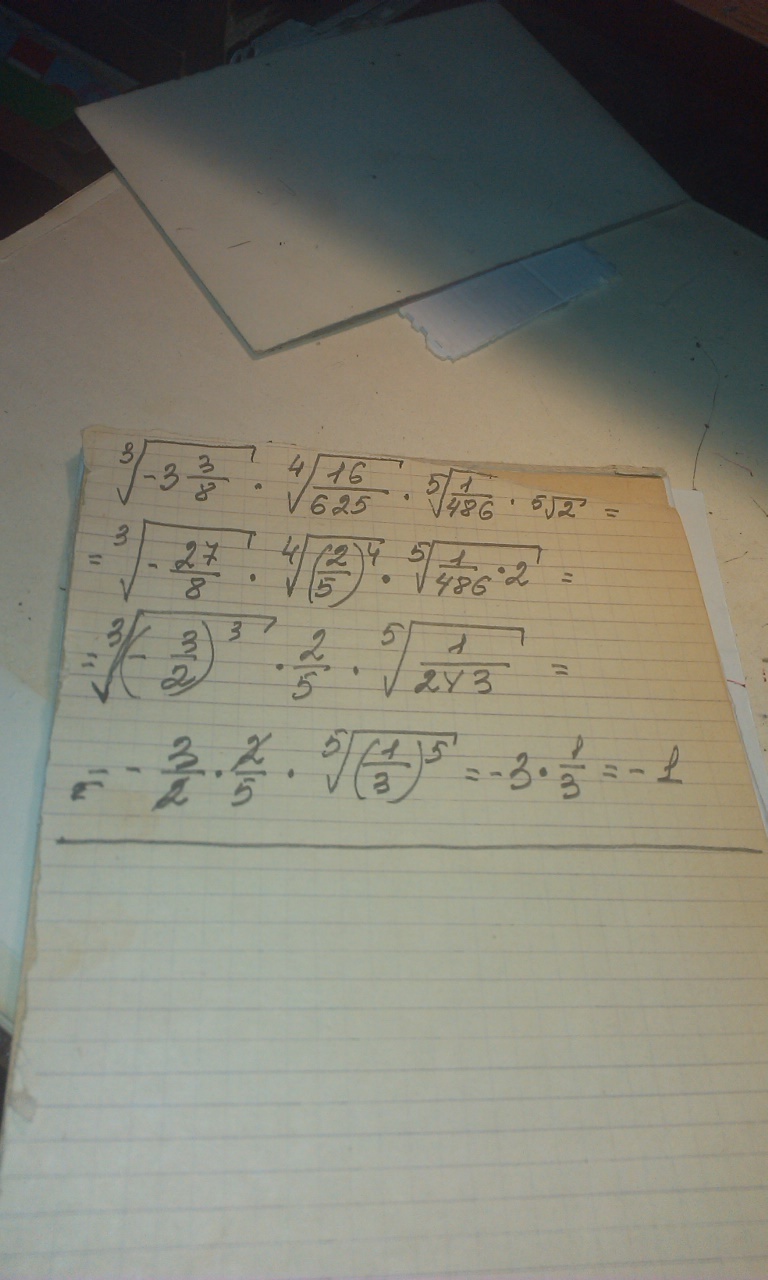 ∛(-3 3/8) · ∜(16/625) · ⁵√(1/486) · ⁵√2 =
= ∛(-27/8) · ∜((2/5)⁴) · ⁵√(1/486 · 2) =
= ∛((-3/2)³) · 2/5 · ⁵√(1/243) =
= -3/2 · 2/5 · ⁵√((1/3)⁵) = -3 · 1/3 = -1